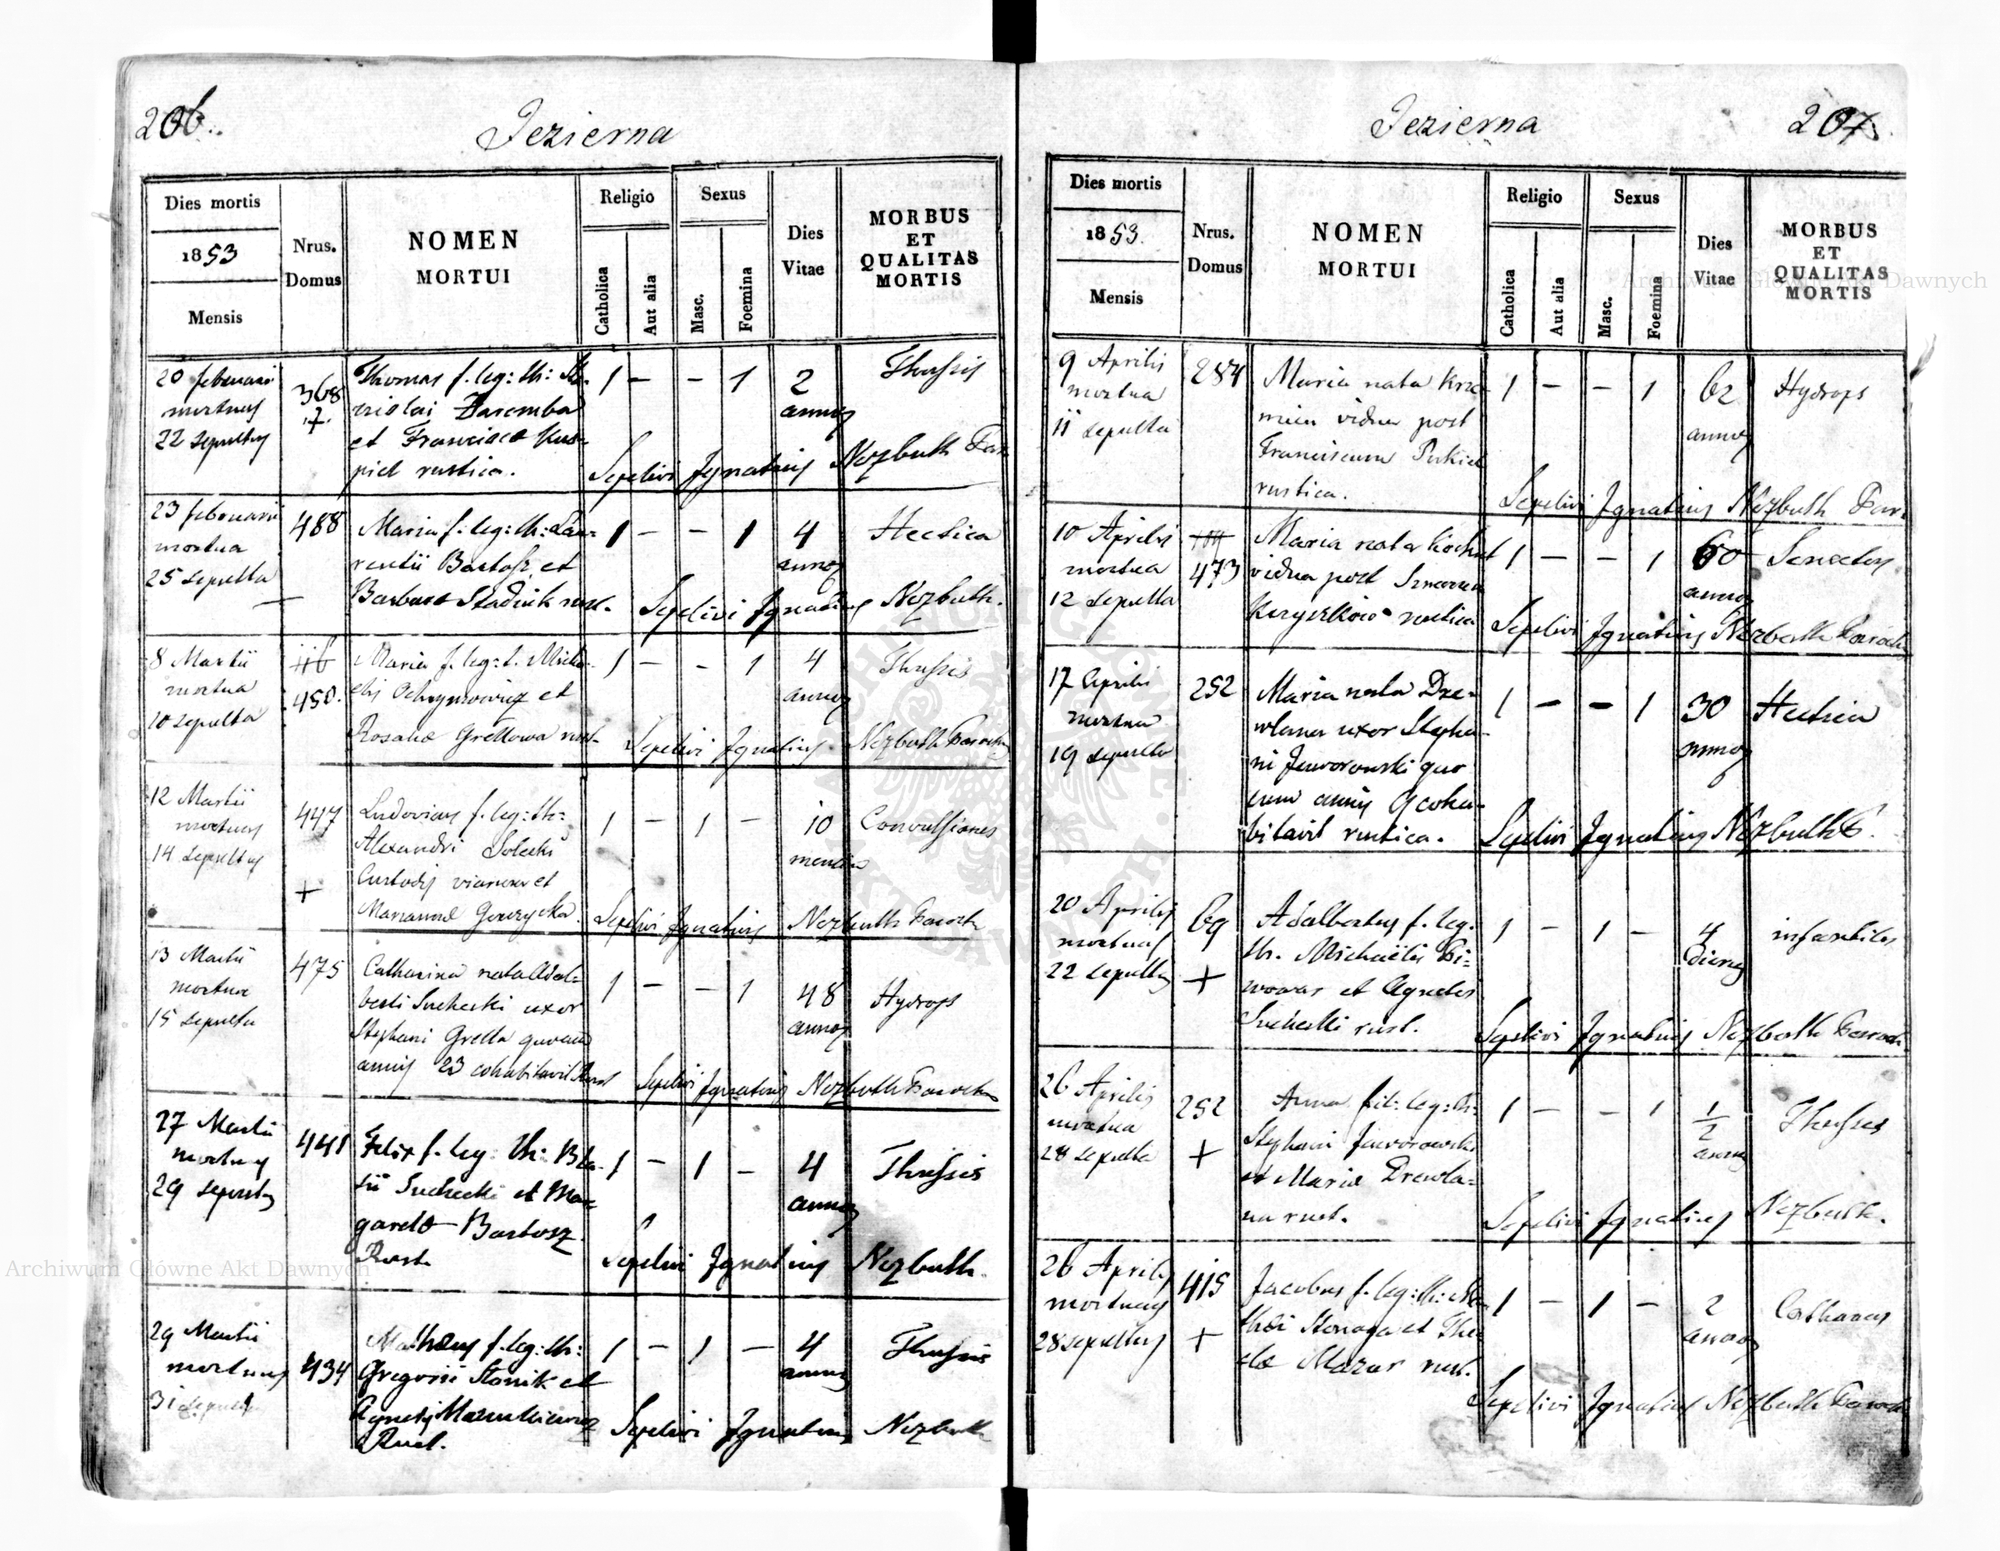 206.
Jezierna
Dies mortis
1853
Mensis
Nrus.
Domus
NOMEN
MORTUI
Religio
Catholica
Aut alia
Sexus
Masc.
Foemina
Dies
Vitae
MORBUS
ET
QUALITAS
MORTIS
20 februarii
mortuus
22 sepultus
368
+
Thomas f. leg: th:
Zaremba
et Francisca
rustica.
1 — — 1
2
annos
Thussis
Sepelivi Ignatius Nezbuth Par
23 februarii
mortua
25 sepulta
488
Maria f. leg: th: Lau-
rentii Bartosz et
Barbara Stadnik rust.
1 — — 1
4
annos
Hectica
Sepelivi Ignatius Nezbuth.
8 Martii
mortua
10 sepulta
116
450.
Maria f. leg: t. Micha-
elis Ochrymowicz et
Rosaliæ Grettowa rust.
1 — — 1
4
annos
Thussis
Sepelivi Ignatius Nezbuth Parochus
12 Martii
mortuus
14 sepultus
447
+
Ludovicus f. leg: th:
Alexandri Solecki
Custodis et
Mariannæ
1 — 1 —
10
menses
Convulsiones
Sepelivi Ignatius Nezbuth Paroch
13 Martii
mortua
15 sepulta
475
Catharina nata Adal-
berti Suchecki uxor
Stephani Gretta quocum
annis 23 cohabitavit Rust
1 — — 1
48
annos
Hydrops
Sepelivi Ignatius Nezbuth Parochus
27 Martii
mortuus
29 sepultus
441
Felix f. leg: th: Bla-
sii Suchecki et Mar-
garetæ Bartosz
Rust.
1 — 1 —
4
annos
Thussis
Sepelivi Ignatius Nezbuth.
29 Martii
mortuus
31 sepultus
434
Mathæus f. leg: th:
Gregorii Stanik et
Agnetis
Rust.
1 — 1 —
4
annos
Thussis
Sepelivi Ignatius Nezbuth
Jezierna
207
Dies mortis
1853.
Mensis
Nrus.
Domus
NOMEN
MORTUI
Religio
Catholica
Aut alia
Sexus
Masc.
Foemina
Dies
Vitae
MORBUS
ET
QUALITAS
MORTIS
9 Aprilis
mortua
11 sepulta
284
Maria nata Krze-
mien vidua post
Franciscum Pukiel
rustica.
1 — — 1
62
annos
Hydrops
Sepelivi Ignatius Nezbuth Par
10 Aprilis
mortua
12 sepulta
473
Maria nata
vidua post
rustica
1 — — 1
60
annos
Senectus
Sepelivi Ignatius Nezbuth Parochus
17 Aprilis
mortua
19 sepulta
252
Maria nata Dre-
wlana uxor Stepha-
ni Jaworowski quo
cum annis 9 coha-
bitavit rustica.
1 — — 1
30
annos
Hectica
Sepelivi Ignatius Nezbuth P.
20 Aprilis
mortuus
22 sepultus
69
+
Adalbertus f. leg.
th. Michaëlis Pi-
wowar et Agnetis
Suchecki rust.
1 — 1 —
4
dierus
infantilis
Sepelivi Ignatius Nezbuth Paroch
26 Aprilis
mortua
28 sepulta
252
+
Anna fil: leg: th:
Stephani Jaworowski
et Mariæ Drewla-
na rust.
1 — — 1
1/2
annus
Thussis
Sepelivi Ignatius Nezbuth.
26 Aprilis
mortuus
28 sepultus
415
+
Jacobus f. leg: th: Ma-
thæi Stonoga et The-
clæ Mazur rust.
1 — 1 —
2
annos
Catharus
Sepelivi Ignatius Nezbuth Paroch
Archiwum Główne Akt Dawnych
Archiwum Główne Akt Dawnych
ARCHIWUM GŁÓWNE AKT DAWNYCH